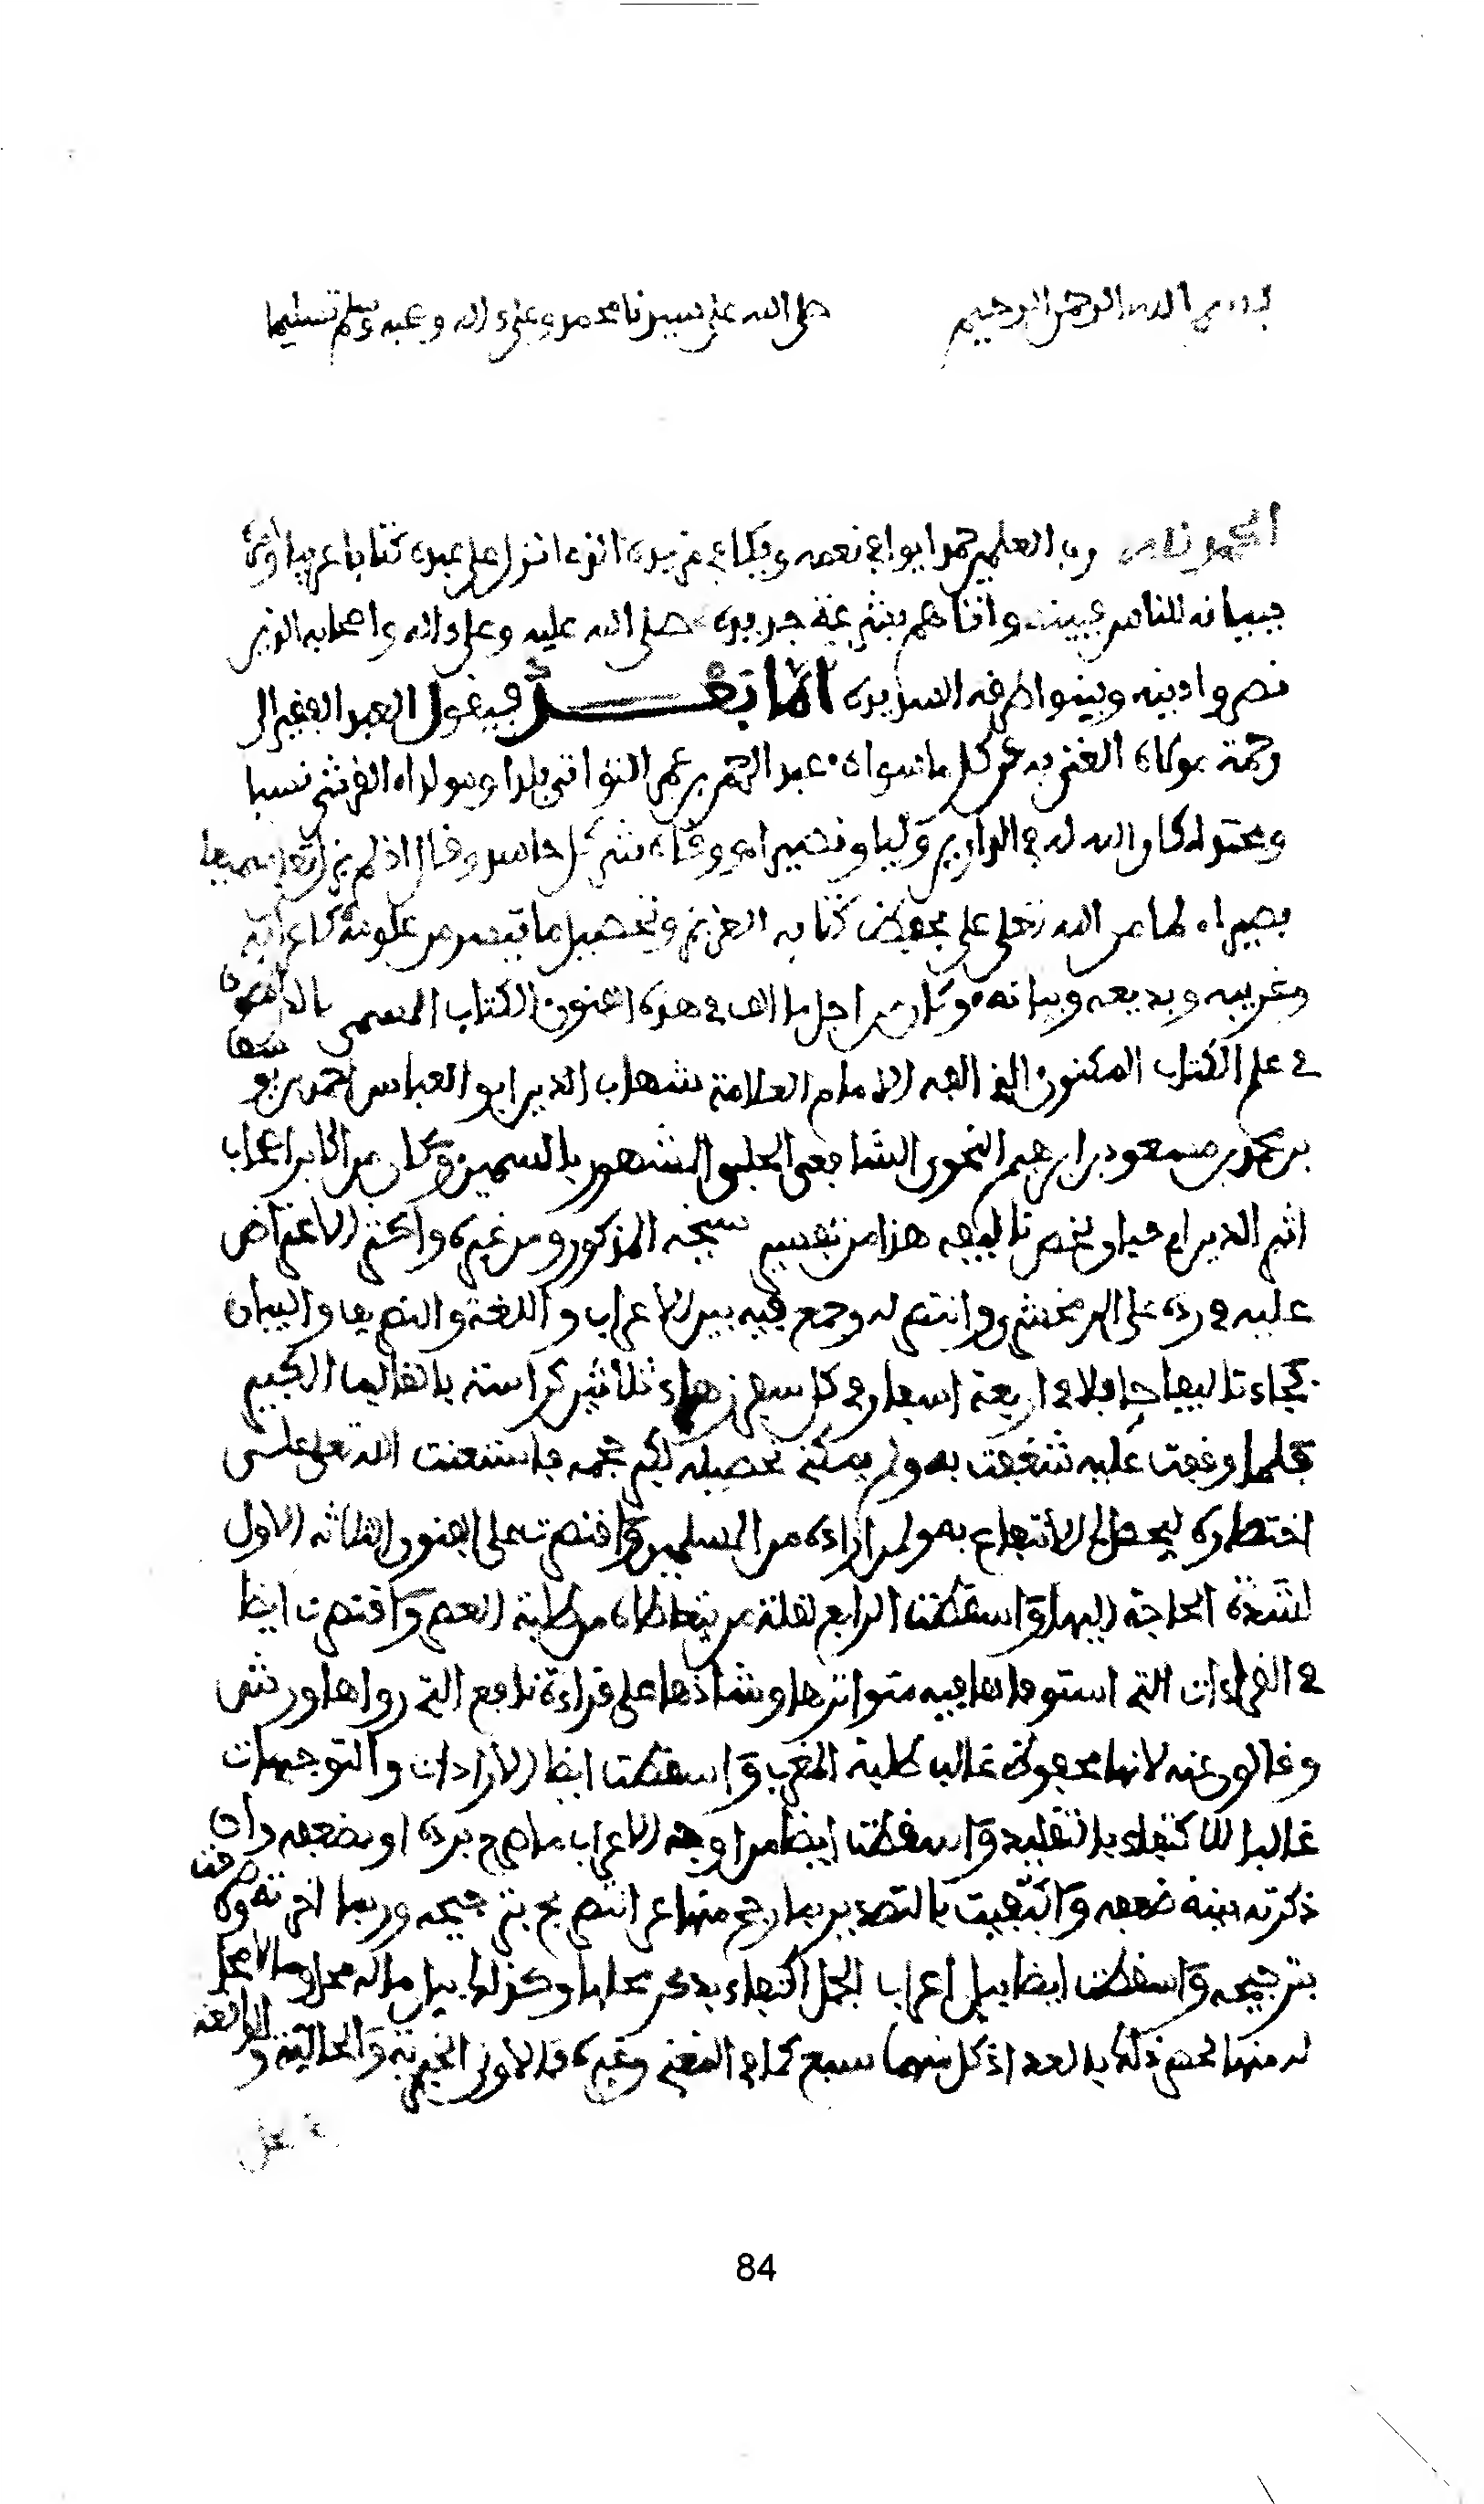 بسم الله الرحمن الرحيم صلى الله على سيدنا محمد وعلى ءاله وصحبه وسلم تسليما
الحمد لله رب العلمين حمدا يوافي نعمه ويكافئ مزيده الذي انزل على عبده كتابا عربيا
ببيانه للناس مبينه واتاهم بشريعة جديدة صلى الله عليه وعلى ءاله واصحابه الذين
نصروا دينه وبينوا طرقه السديدة اما بعد فيقول العبد الفقير الى
رحمة مولاه الغني به عن كل ما سواه عبد الرحمن بن عمر التواتي بلدا ومولدا القرشي نسبا
ومحتدا كان الله له في الدارين وليا ونصيرا ووقاه شر كل حاسد وقال اذ لم يزل تعلى سميعا
بصيرا لما من الله تعلى علي بحفظ كتابه العزيز وتحصيل ما تيسر من علومه كاعرابه
وغريبه وبديعه وبيانه وكان من اجل ما الف في هذه الفنون الكتاب المسمى بالدر المصون
في علم الكتاب المكنون الذي الفه الامام العلامة شهاب الدين ابو العباس احمد بن يوسف
بن محمد بن مسعود بن ابرهيم النحوي الشافعي الحلبي المشهور بالسمين وكان من اكابر اصحاب
اثير الدين ابي حيان ولخص تاليفه هذا من تفسير شيخه المذكور ومن غيره واكثر الاعتراض
عليه في رده على الزمخشري وانتصر له وجمع فيه بين الاعراب واللغة والتصريف والبيان
فجاء تاليفا حافلا في اربعة اسفار في كل سفر زهاء ثلاثين كراسة بالقالب الكبير
فلما وقفت عليه شغفت به ولم يمكني تحصيله لكبر حجمه فاستعنت الله تعلى على
اختصاره ليحصل لي الانتفاع به ولمن اراده من المسلمين واقتصرت على الفنون الثلاثة الاول
لشدة الحاجة اليها واسقطت الرابع لقلة من يتعاطاه من طلبة العصر واقتصرت ايضا
في القراءات التي استوفاها فيه متواترها وشاذها على قراءة نافع التي رواها ورش
وقالون عنه لانها محفوظة غالبا لطلبة المغرب واسقطت ايضا الايرادات والتوجيهات
غالبا للاكتفاء بالتقليد واسقطت ايضا من اوجه الاعراب ما صرح برده او بضعفه وان
ذكرته بينت ضعفه واكتفيت بالتصدير بما رجح منها عن التصريح بترجيحه وربما اخرته وصرحت
بترجيحه واسقطت ايضا بيان اعراب الجمل اكتفاء بذكر محلها وكذلك بيان ما له محل وما لا محل
له منها لحصر ذلك بالعد اذ كل منهما سبع كما في المغني وغيره فالاولى الخبرية والحالية والواقعة